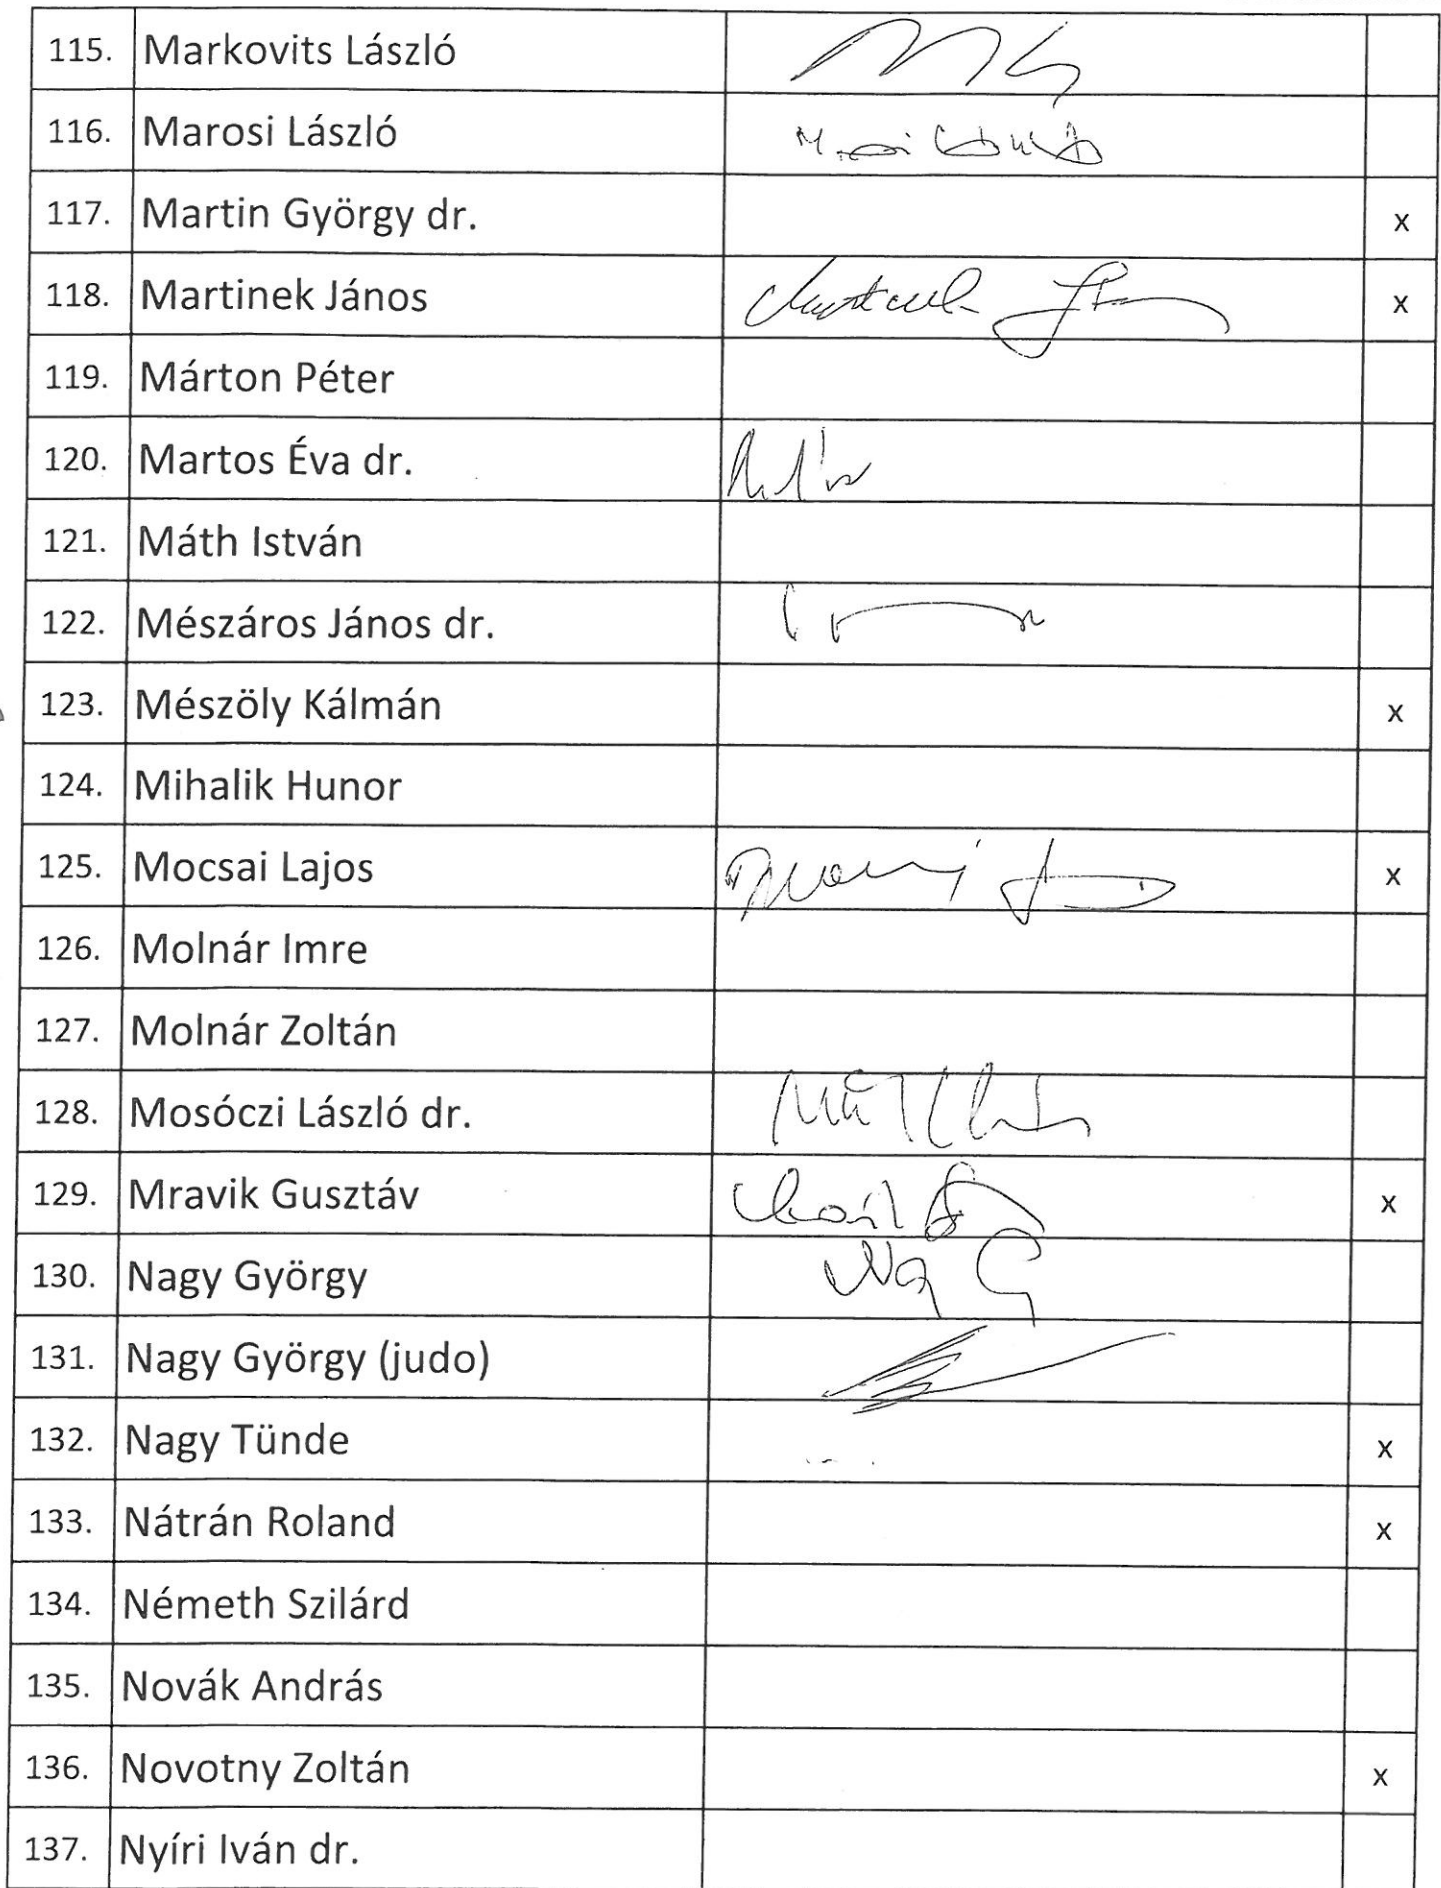 115. Markovits László
116. Marosi László
117. Martin György dr. x
118. Martinek János x
119. Márton Péter
120. Martos Éva dr.
121. Máth István
122. Mészáros János dr.
123. Mészöly Kálmán x
124. Mihalik Hunor
125. Mocsai Lajos x
126. Molnár Imre
127. Molnár Zoltán
128. Mosóczi László dr.
129. Mravik Gusztáv x
130. Nagy György
131. Nagy György (judo)
132. Nagy Tünde x
133. Nátrán Roland x
134. Németh Szilárd
135. Novák András
136. Novotny Zoltán x
137. Nyíri Iván dr.